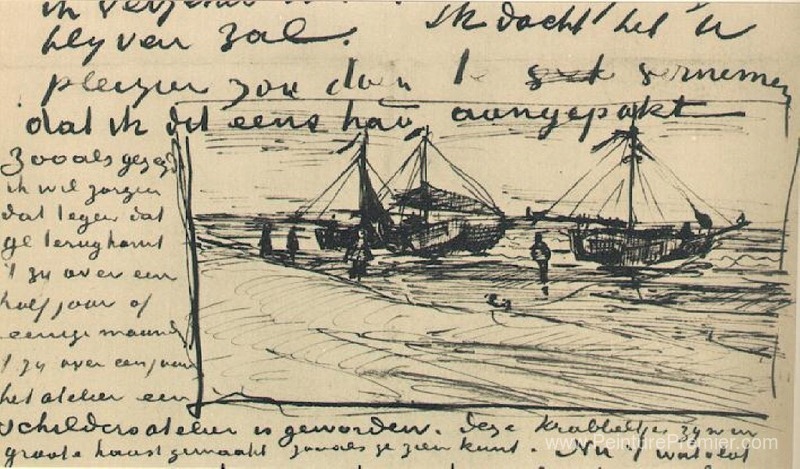 blyven zal. Ik dacht het U
plezier zou doen te vernemen
dat ik dit eens had aangepakt
Zooals gezegd
ik wil zorgen
dat tegen dat
ge terugkomt
't zy over een
half jaar of
eenige maanden
't zy over een jaar
het atelier een
schildersatelier is geworden. Deze krabbeltjes zyn in
groote haast gemaakt zooals ge zien kunt. Nu 't wat
www.PeinturePremier.com